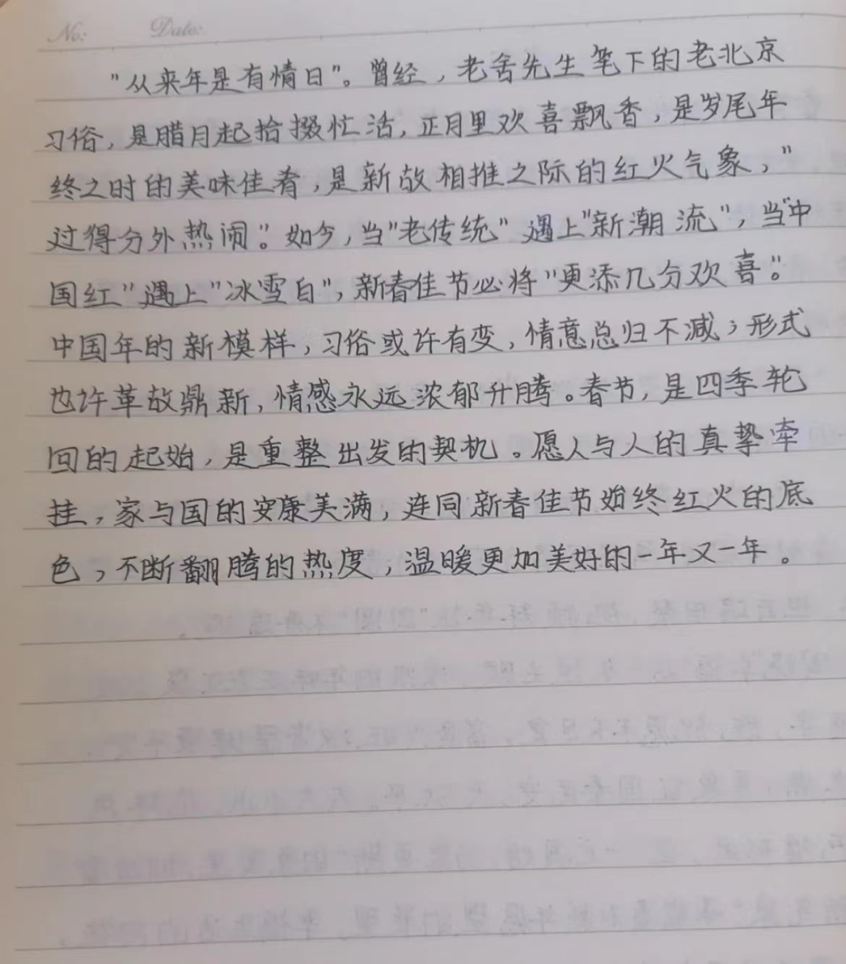 No:   Date:
"从来年是有情日"。曾经，老舍先生笔下的老北京
习俗，是腊月起拾掇忙活，正月里欢喜飘香，是岁尾年
终之时的美味佳肴，是新故相推之际的红火气象，"
过得分外热闹"。如今，当"老传统"遇上"新潮流"，当"中
国红"遇上"冰雪白"，新春佳节必将"更添几分欢喜"。
中国年的新模样，习俗或许有变，情意总归不减；形式
也许革故鼎新，情感永远浓郁升腾。春节，是四季轮
回的起始，是重整出发的契机。愿人与人的真挚牵
挂，家与国的安康美满，连同新春佳节始终红火的底
色，不断翻腾的热度，温暖更加美好的一年又一年。